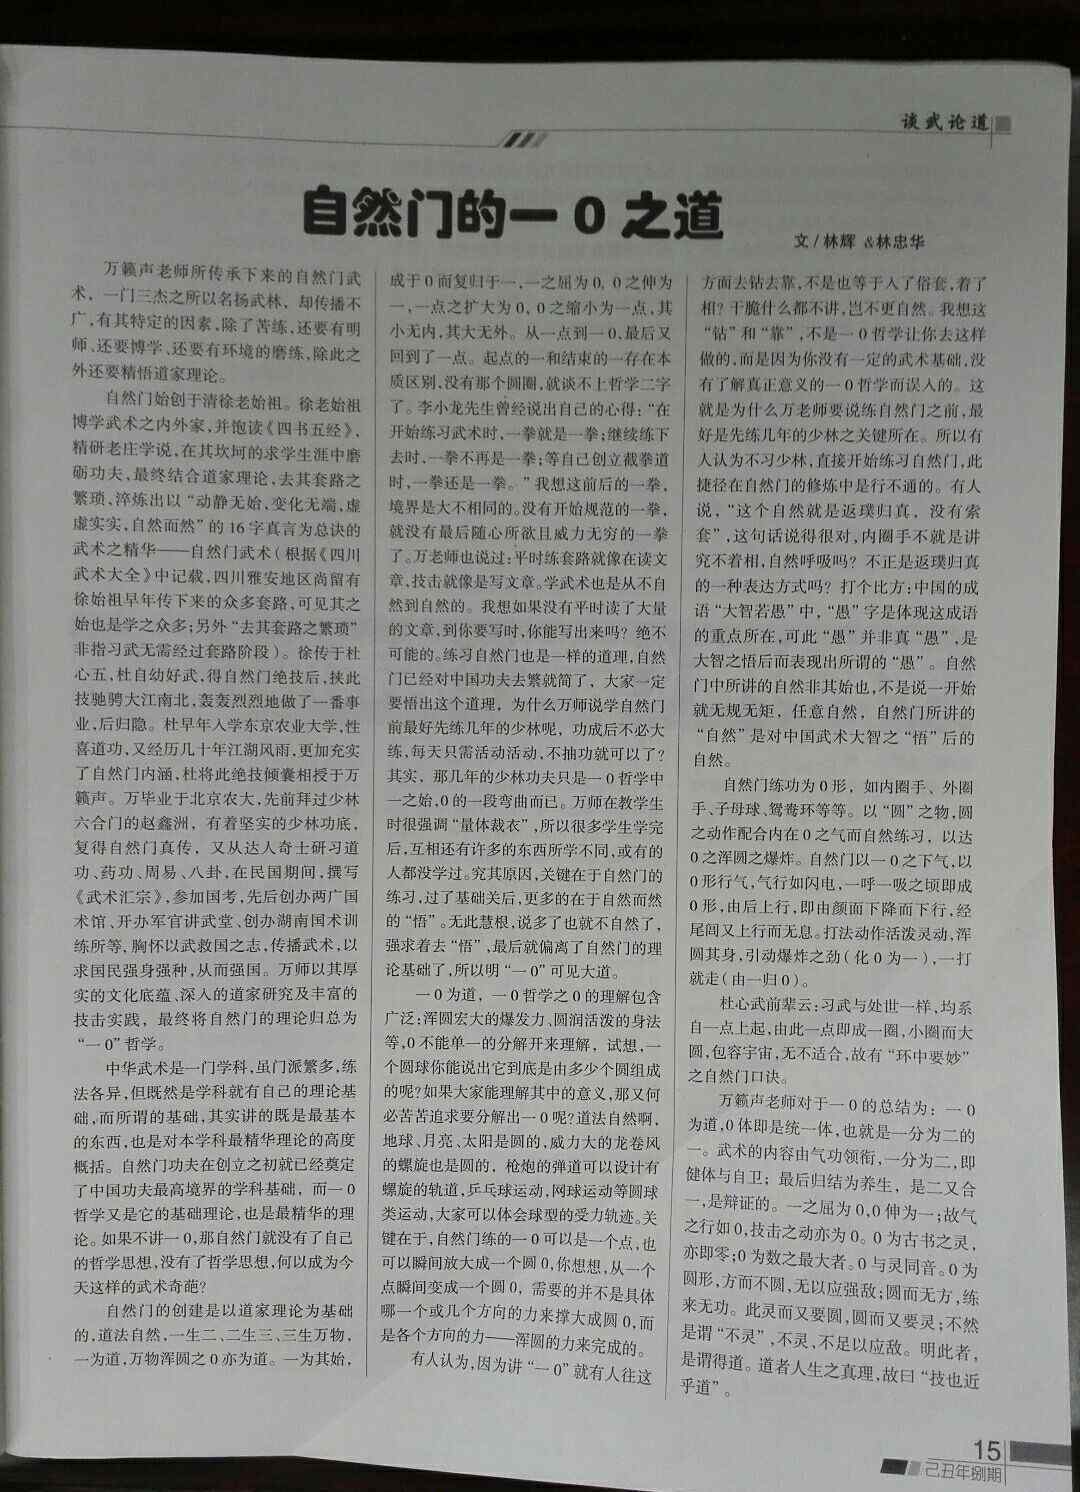 谈武论道
自然门的一0之道
文/林辉 &林忠华
万籁声老师所传承下来的自然门武
术，一门三杰之所以名扬武林，却传播不
广，有其特定的因素，除了苦练、还要有明
师、还要博学、还要有环境的磨练，除此之
外还要精悟道家理论。
自然门始创于清徐老始祖。徐老始祖
博学武术之内外家，并饱读《四书五经》，
精研老庄学说，在其坎坷的求学生涯中磨
砺功夫，最终结合道家理论，去其套路之
繁琐、淬炼出以“动静无始，变化无端，虚
虚实实，自然而然”的16字真言为总诀的
武术之精华——自然门武术（根据《四川
武术大全》中记载，四川雅安地区尚留有
徐始祖早年传下来的众多套路，可见其之
始也是学之众多；另外“去其套路之繁琐”
非指习武无需经过套路阶段）。徐传于杜
心五，杜自幼好武，得自然门绝技后，挟此
技驰骋大江南北，轰轰烈烈地做了一番事
业，后归隐。杜早年入学东京农业大学，性
喜道功，又经历几十年江湖风雨，更加充实
了自然门内涵，杜将此绝技倾囊相授于万
籁声。万毕业于北京农大，先前拜过少林
六合门的赵鑫洲，有着坚实的少林功底，
复得自然门真传，又从达人奇士研习道
功、药功、周易、八卦，在民国期间，撰写
《武术汇宗》，参加国考，先后创办两广国
术馆、开办军官讲武堂、创办湖南国术训
练所等，胸怀以武救国之志，传播武术，以
求国民强身强种，从而强国。万师以其厚
实的文化底蕴、深入的道家研究及丰富的
技击实践，最终将自然门的理论归总为
“一0”哲学。
中华武术是一门学科，虽门派繁多，练
法各异，但既然是学科就有自己的理论基
础，而所谓的基础，其实讲的既是最基本
的东西，也是对本学科最精华理论的高度
概括。自然门功夫在创立之初就已经奠定
了中国功夫最高境界的学科基础，而一0
哲学又是它的基础理论，也是最精华的理
论。如果不讲一0，那自然门就没有了自己
的哲学思想，没有了哲学思想，何以成为今
天这样的武术奇葩？
自然门的创建是以道家理论为基础
的，道法自然，一生二、二生三、三生万物，
一为道，万物浑圆之0亦为道。一为其始，
成于0而复归于一，一之屈为0，0之伸为
一，一点之扩大为0，0之缩小为一点，其
小无内，其大无外。从一点到一0，最后又
回到了一点。起点的一和结束的一存在本
质区别，没有那个圆圈，就谈不上哲学二字
了。李小龙先生曾经说出自己的心得：“在
开始练习武术时，一拳就是一拳；继续练下
去时，一拳不再是一拳；等自己创立截拳道
时，一拳还是一拳。”我想这前后的一拳，
境界是大不相同的。没有开始规范的一拳，
就没有最后随心所欲且威力无穷的一拳
了。万老师也说过：平时练套路就像在读文
章，技击就像是写文章。学武术也是从不自
然到自然的。我想如果没有平时读了大量
的文章，到你要写时，你能写出来吗？绝不
可能的。练习自然门也是一样的道理，自然
门已经对中国功夫去繁就简了，大家一定
要悟出这个道理，为什么万师说学自然门
前最好先练几年的少林呢，功成后不必大
练，每天只需活动活动，不抽功就可以了？
其实，那几年的少林功夫只是一0哲学中
一之始，0的一段弯曲而已。万师在教学生
时很强调“量体裁衣”，所以很多学生学完
后，互相还有许多的东西所学不同，或有的
人都没学过。究其原因，关键在于自然门的
练习，过了基础关后，更多的在于自然而然
的“悟”。无此慧根，说多了也就不自然了，
强求着去“悟”，最后就偏离了自然门的理
论基础了，所以明“一0”可见大道。
一0为道，一0哲学之0的理解包含
广泛：浑圆宏大的爆发力、圆润活泼的身法
等，0不能单一的分解开来理解，试想，一
个圆球你能说出它到底是由多少个圆组成
的呢？如果大家能理解其中的意义，那又何
必苦苦追求要分解出一0呢？道法自然啊，
地球、月亮、太阳是圆的，威力大的龙卷风
的螺旋也是圆的，枪炮的弹道可以设计有
螺旋的轨道，乒乓球运动，网球运动等圆球
类运动，大家可以体会球型的受力轨迹。关
键在于，自然门练的一0可以是一个点，也
可以瞬间放大成一个圆0，你想想，从一个
点瞬间变成一个圆0，需要的并不是具体
哪一个或几个方向的力来撑大成圆0，而
是各个方向的力——浑圆的力来完成的。
有人认为，因为讲“一0”就有人往这
方面去钻去靠，不是也等于入了俗套，着了
相？干脆什么都不讲，岂不更自然。我想这
“钻”和“靠”，不是一0哲学让你去这样
做的，而是因为你没有一定的武术基础，没
有了解真正意义的一0哲学而误入的。这
就是为什么万老师要说练自然门之前，最
好是先练几年的少林之关键所在。所以有
人认为不习少林，直接开始练习自然门，此
捷径在自然门的修炼中是行不通的。有人
说，“这个自然就是返璞归真，没有索
套”，这句话说得很对，内圈手不就是讲
究不着相，自然呼吸吗？不正是返璞归真
的一种表达方式吗？打个比方：中国的成
语“大智若愚”中，“愚”字是体现这成语
的重点所在，可此“愚”并非真“愚”，是
大智之悟后而表现出所谓的“愚”。自然
门中所讲的自然非其始也，不是说一开始
就无规无矩，任意自然，自然门所讲的
“自然”是对中国武术大智之“悟”后的
自然。
自然门练功为0形，如内圈手、外圈
手、子母球、鸳鸯环等等。以“圆”之物，圆
之动作配合内在0之气而自然练习，以达
0之浑圆之爆炸。自然门以一0之下气，以
0形行气，气行如闪电，一呼一吸之顷即成
0形，由后上行，即由颜面下降而下行，经
尾闾又上行而无息。打法动作活泼灵动，浑
圆其身，引动爆炸之劲（化0为一），一打
就走（由一归0）。
杜心武前辈云：习武与处世一样，均系
自一点上起，由此一点即成一圈，小圈而大
圆，包容宇宙，无不适合，故有“环中要妙”
之自然门口诀。
万籁声老师对于一0的总结为：一0
为道，0体即是统一体，也就是一分为二的
一。武术的内容由气功领衔，一分为二，即
健体与自卫；最后归结为养生，是二又合
一，是辩证的。一之屈为0，0伸为一；故气
之行如0，技击之动亦为0。0为古书之灵，
亦即零；0为数之最大者。0与灵同音。0为
圆形，方而不圆，无以应强敌；圆而无方，练
来无功。此灵而又要圆，圆而又要灵；不然
是谓“不灵”，不灵，不足以应敌。明此者，
是谓得道。道者人生之真理，故曰“技也近
乎道”。
15
己丑年捌期